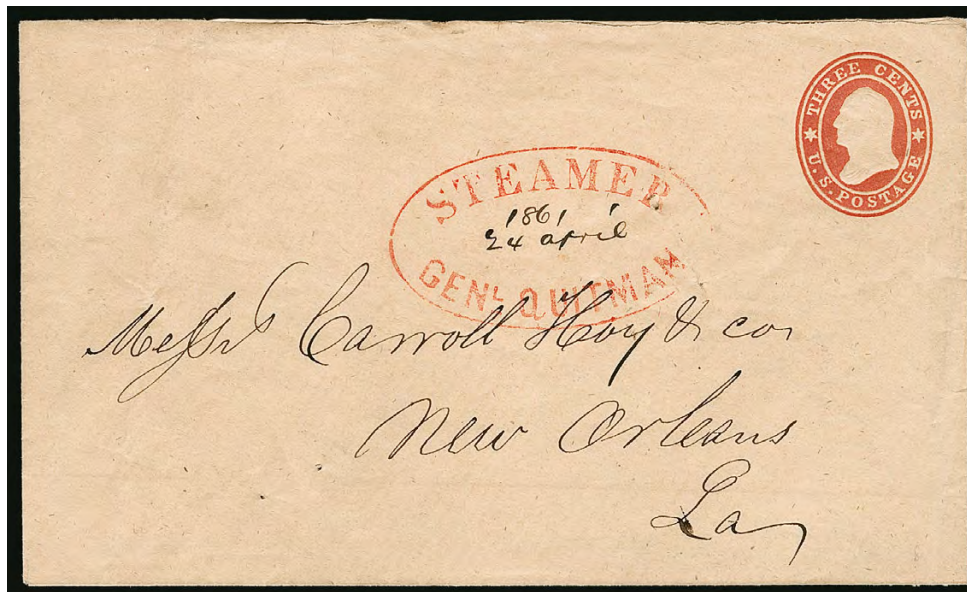 THREE CENTS
U.S. POSTAGE
STEAMER
1861
24 april
GENL QUITMAN
Messrs Carroll Hoy & co
New Orleans
La